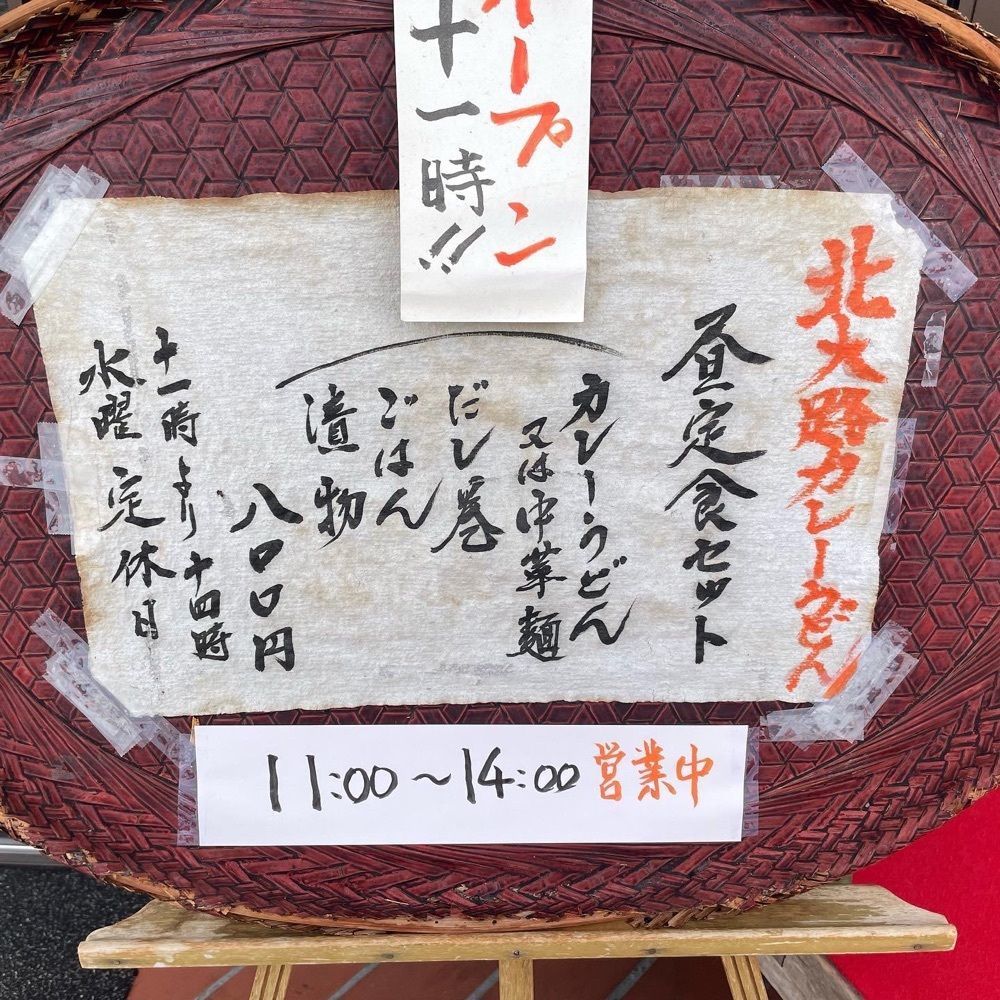 オープン
十一時!!
北大路カレーうどん
昼定食セット
カレーうどん
又は中華麺
だし巻
ごはん
漬物
八〇〇円
十一時より十四時
水曜定休日
11:00～14:00 営業中